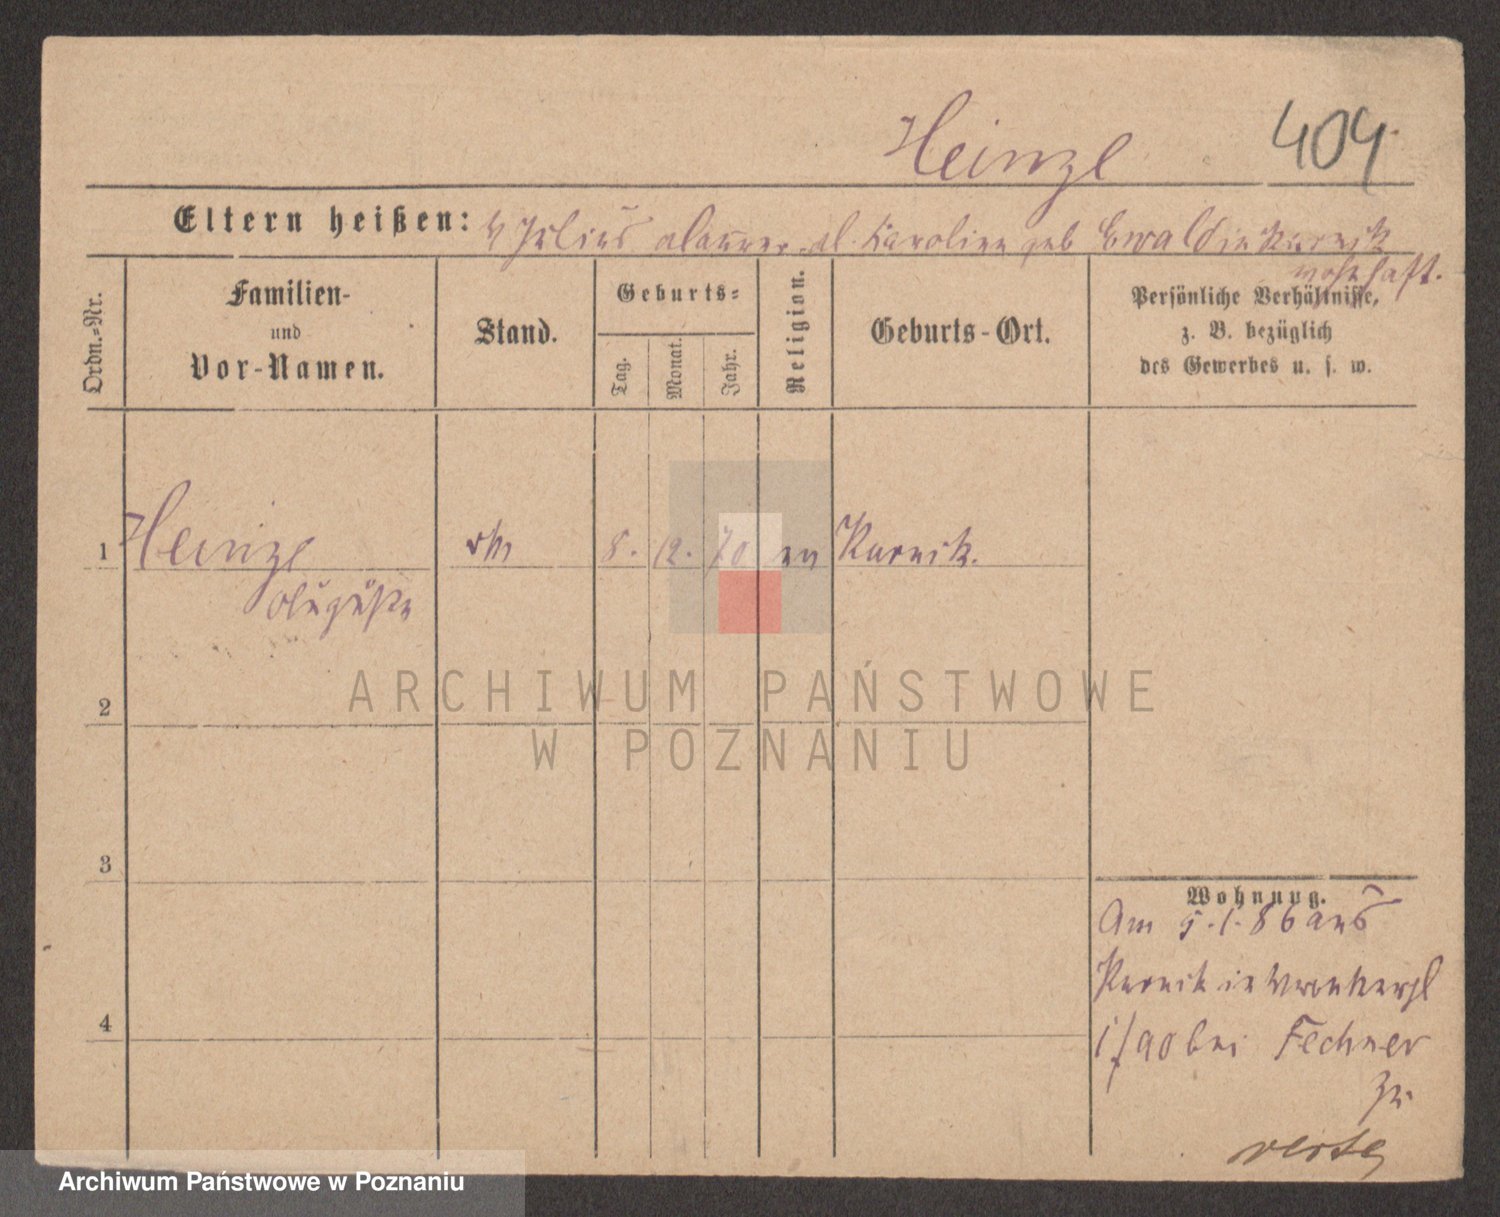 Heinze 404.
Eltern heißen: Julius Karoline geb Ewald in Kurnik
wohnhaft.
Ordn.-Nr.
Familien-
und
Vor-Namen.
Stand.
Geburts-
Tag.
Monat.
Jahr.
Religion.
Geburts-Ort.
Persönliche Verhältnisse,
z. B. bezüglich
des Gewerbes u. s. w.
1 Heinze 8. 12. 70 ev Kurnik.
Auguste
2
3
4
Wohnung.
Am 5.1.86 aus
Kurnik in
bei Fechner
zu
ARCHIWUM PAŃSTWOWE
W POZNANIU
Archiwum Państwowe w Poznaniu